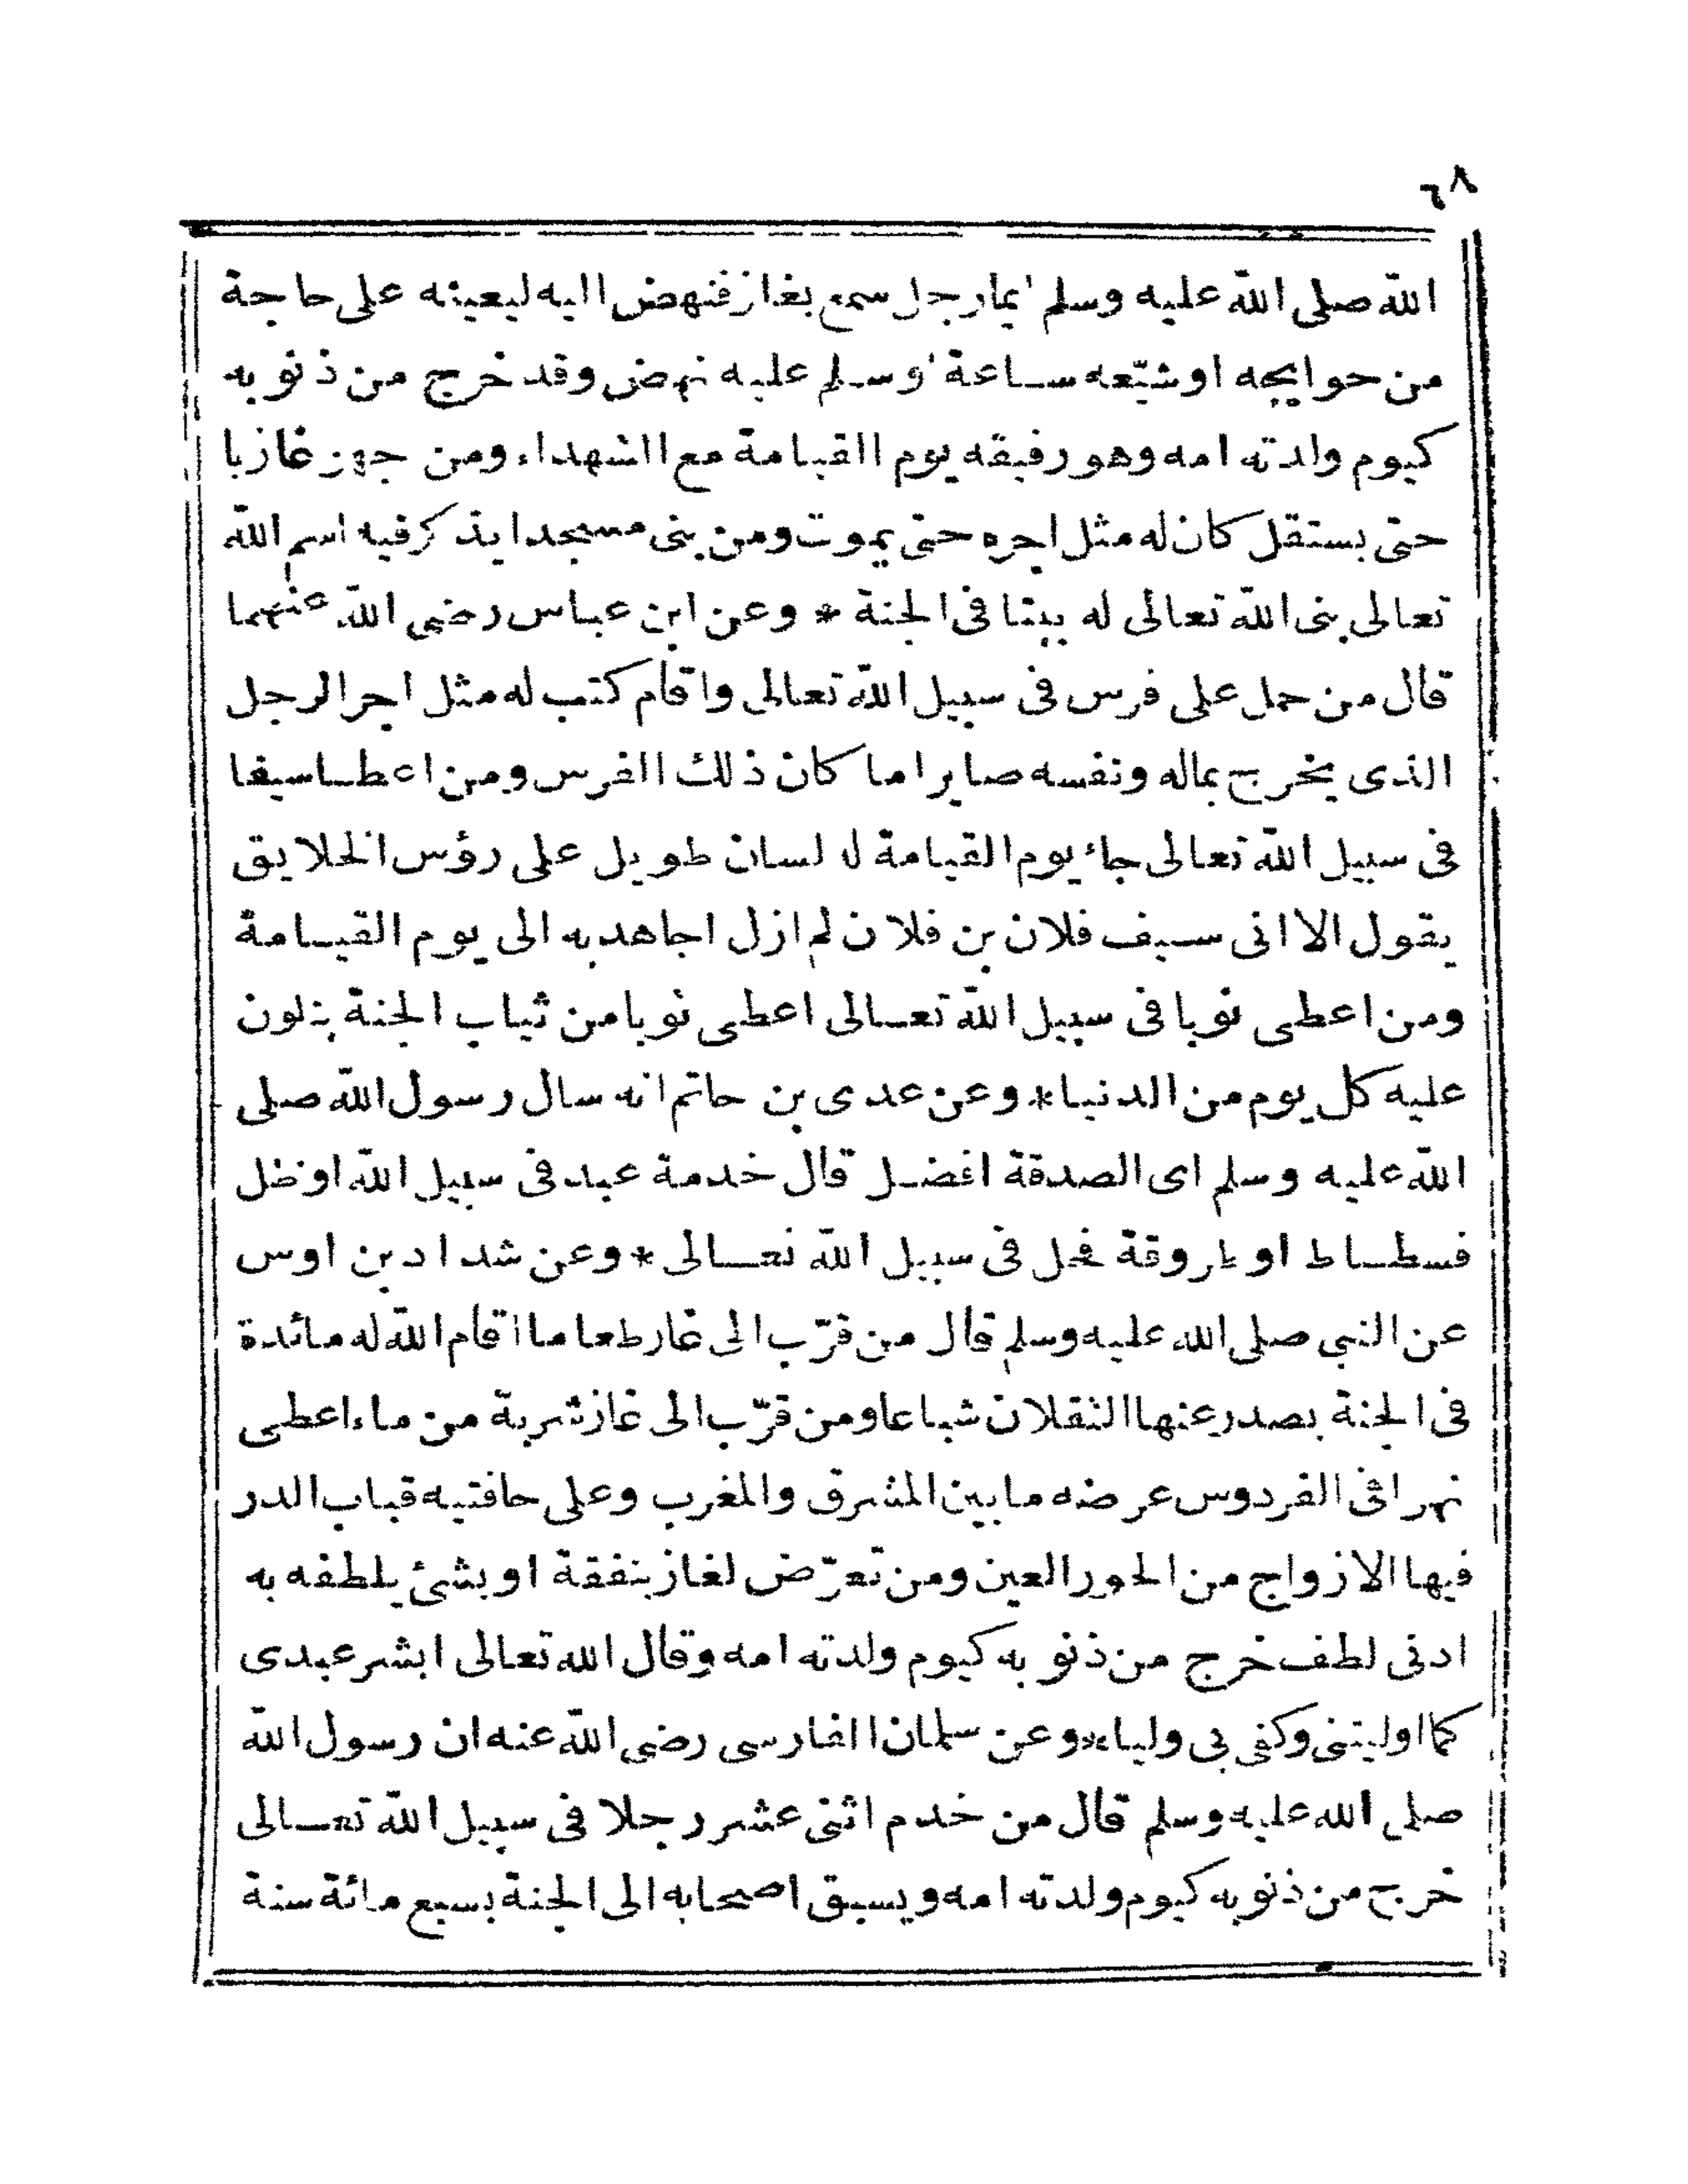 ٦٨
الله صلى الله عليه وسلم ايمارجل سمع بغاز فنهض اليه ليعينه على حاجة
من حوايجه اوشيّعه ساعة اوسلم عليه نهض وقد خرج من ذنوبه
كيوم ولدته امه وهو رفيقه يوم القيامة مع الشهداء ومن جهز غازيا
حتى يستقل كان له مثل اجره حتى يموت ومن بنى مسجدا يذكر فيه اسم الله
تعالى بنى الله تعالى له بيتا فى الجنة * وعن ابن عباس رضى الله عنهما
قال من حمل على فرس فى سبيل الله تعالى واقام كتب له مثل اجر الرجل
الذى يخرج بماله ونفسه صابرا ما كان ذلك الفرس ومن اعطا سيفا
فى سبيل الله تعالى جاء يوم القيامة له لسان طويل على رؤس الخلايق
يقول الا انى سيف فلان بن فلان لم ازل اجاهد به الى يوم القيامة
ومن اعطى ثوبا فى سبيل الله تعالى اعطى ثوبا من ثياب الجنة يتلون
عليه كل يوم من الدنيا * وعن عدى بن حاتم انه سال رسول الله صلى
الله عليه وسلم اى الصدقة افضل قال خدمة عبد فى سبيل الله اوظل
فسطاط او طروقة فحل فى سبيل الله تعالى * وعن شداد بن اوس
عن النبى صلى الله عليه وسلم قال من قرّب الى غاز طعاما اقام الله له مائدة
فى الجنة يصدر عنها الثقلان شباعا ومن قرّب الى غاز شربة من ماء اعطى
نهرا فى الفردوس عرضه ما بين المشرق والمغرب وعلى حافتيه قباب الدر
فيها الازواج من الحور العين ومن تعرّض لغاز بنفقة او بشئ يلطفه به
ادنى لطف خرج من ذنوبه كيوم ولدته امه وقال الله تعالى ابشر عبدى
كما اوليتنى وكفى بى وليا * وعن سلمان الفارسى رضى الله عنه ان رسول الله
صلى الله عليه وسلم قال من خدم اثنى عشر رجلا فى سبيل الله تعالى
خرج من ذنوبه كيوم ولدته امه ويسبق اصحابه الى الجنة بسبع مائة سنة